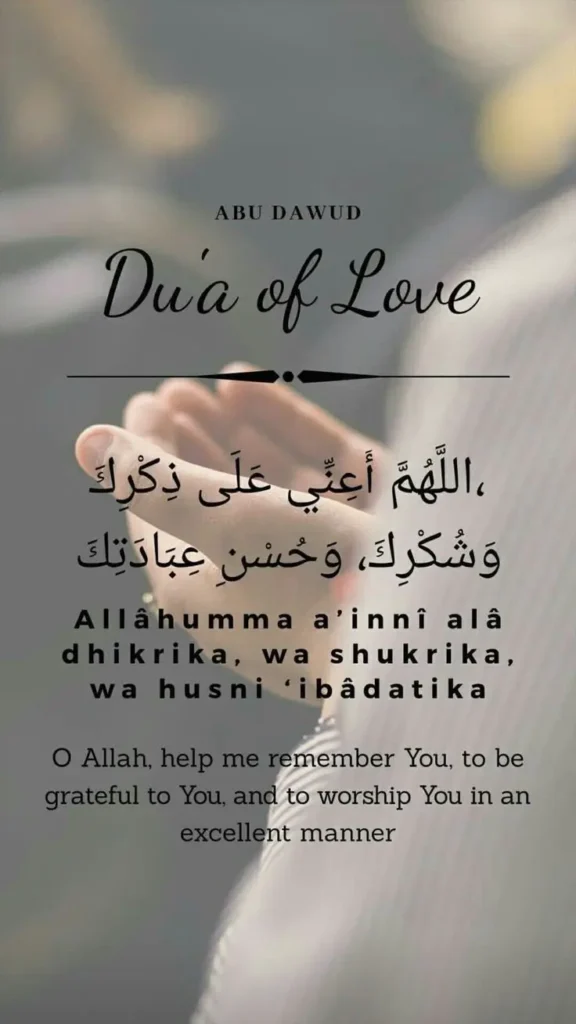 ABU DAWUD
Du'a of Love
،اللَّهُمَّ أَعِنِّي عَلَى ذِكْرِكَ
وَشُكْرِكَ، وَحُسْنِ عِبَادَتِكَ
Allâhumma a’innî alâ
dhikrika, wa shukrika,
wa husni ‘ibâdatika
O Allah, help me remember You, to be
grateful to You, and to worship You in an
excellent manner